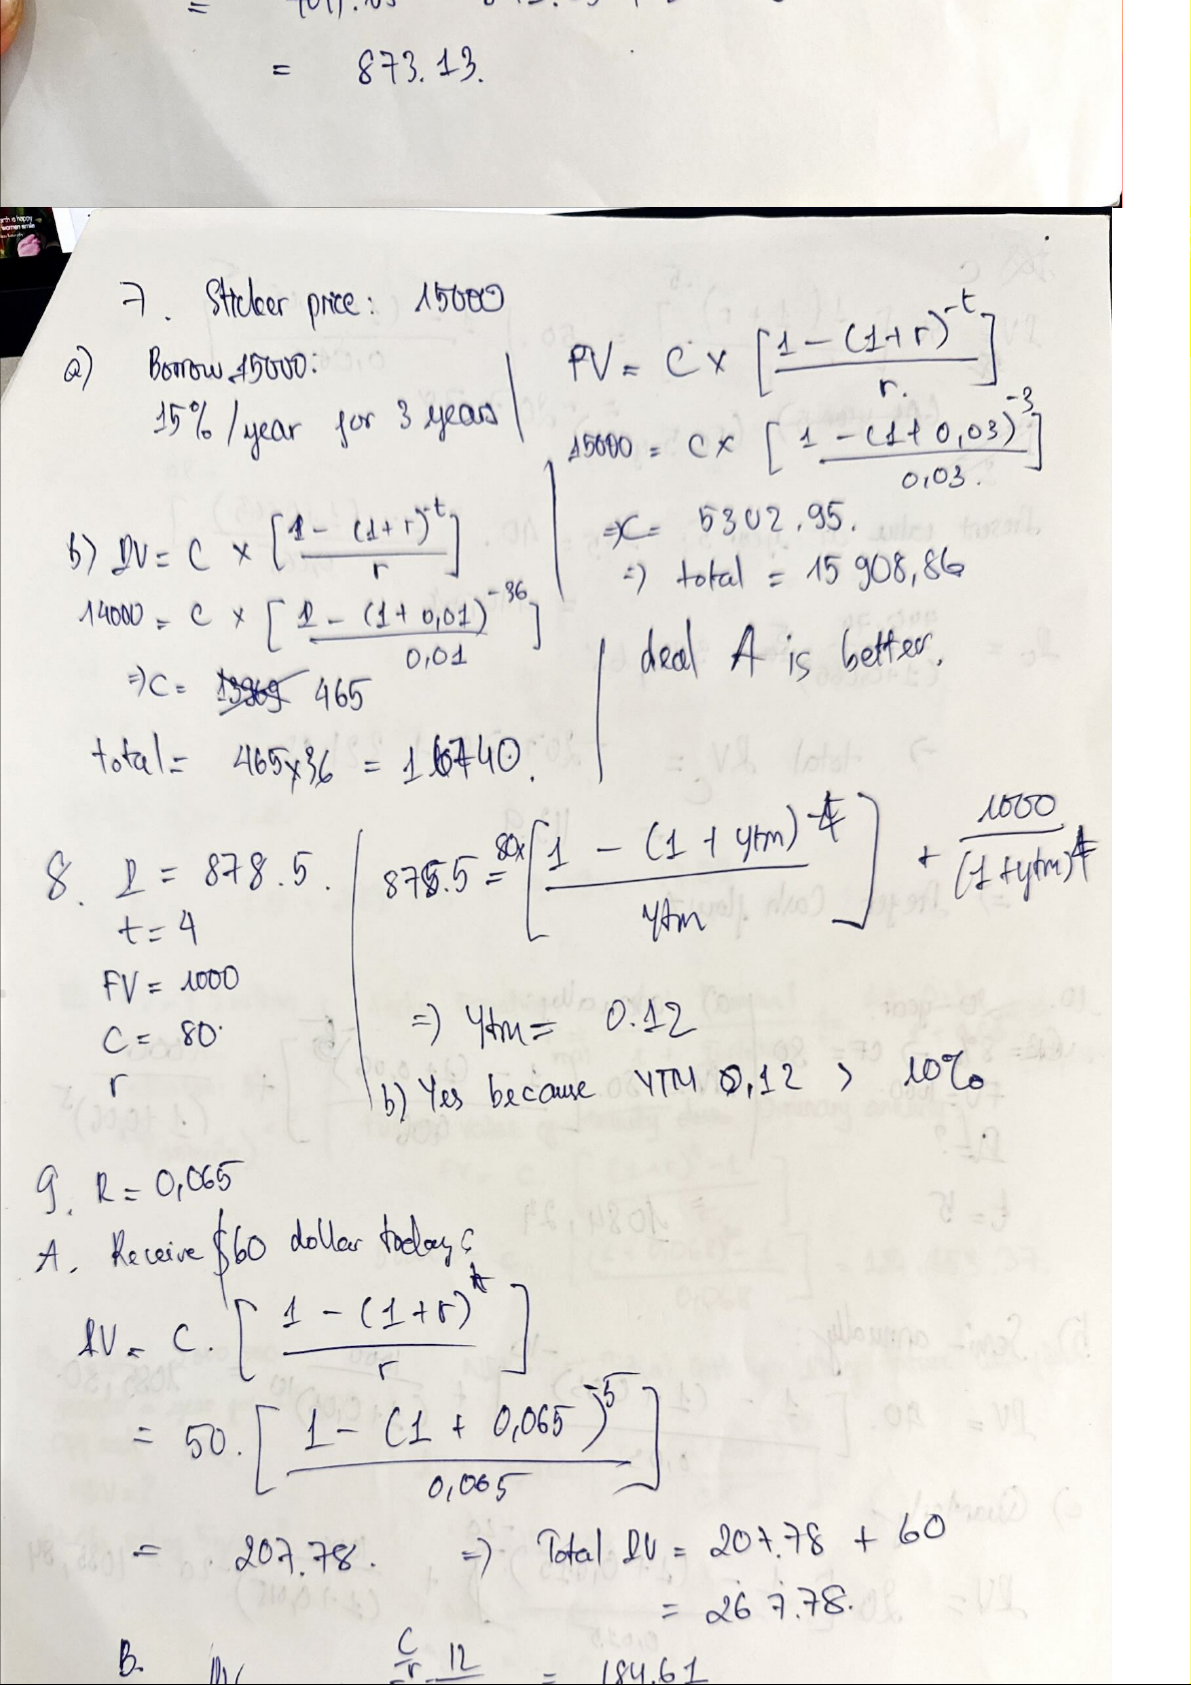 = 873.13.
7. Sticker price: 15000
a) Borrow 15000:
15% /year for 3 years
PV = C × [1 - (1+r)^-t / r.]
15000 = C × [1 - (1+0,03)^-3 / 0,03.]
=> C = 5302.95.
=> total = 15 908,86
b) PV = C × [1 - (1+r)^-t / r]
14000 = C × [1 - (1+0,01)^-36 / 0,01]
=> C = 465
total = 465×36 = 16740.
deal A is better.
8. P = 878.5.
t = 4
FV = 1000
C = 80
r
878.5 = 80× [1 - (1 + ytm)^-4 / ytm] + 1000 / (1+ytm)^4
=> ytm = 0.12
b) Yes because YTM 0,12 > 10%
9. R = 0,065
A. Receive $60 dollar today:
PV = C. [1 - (1+r)^-t / r]
= 50. [1 - (1 + 0,065)^-5 / 0,065]
= 207.78. => Total PV = 207.78 + 60
= 267.78.
B. PV C/r 12 = 184.61